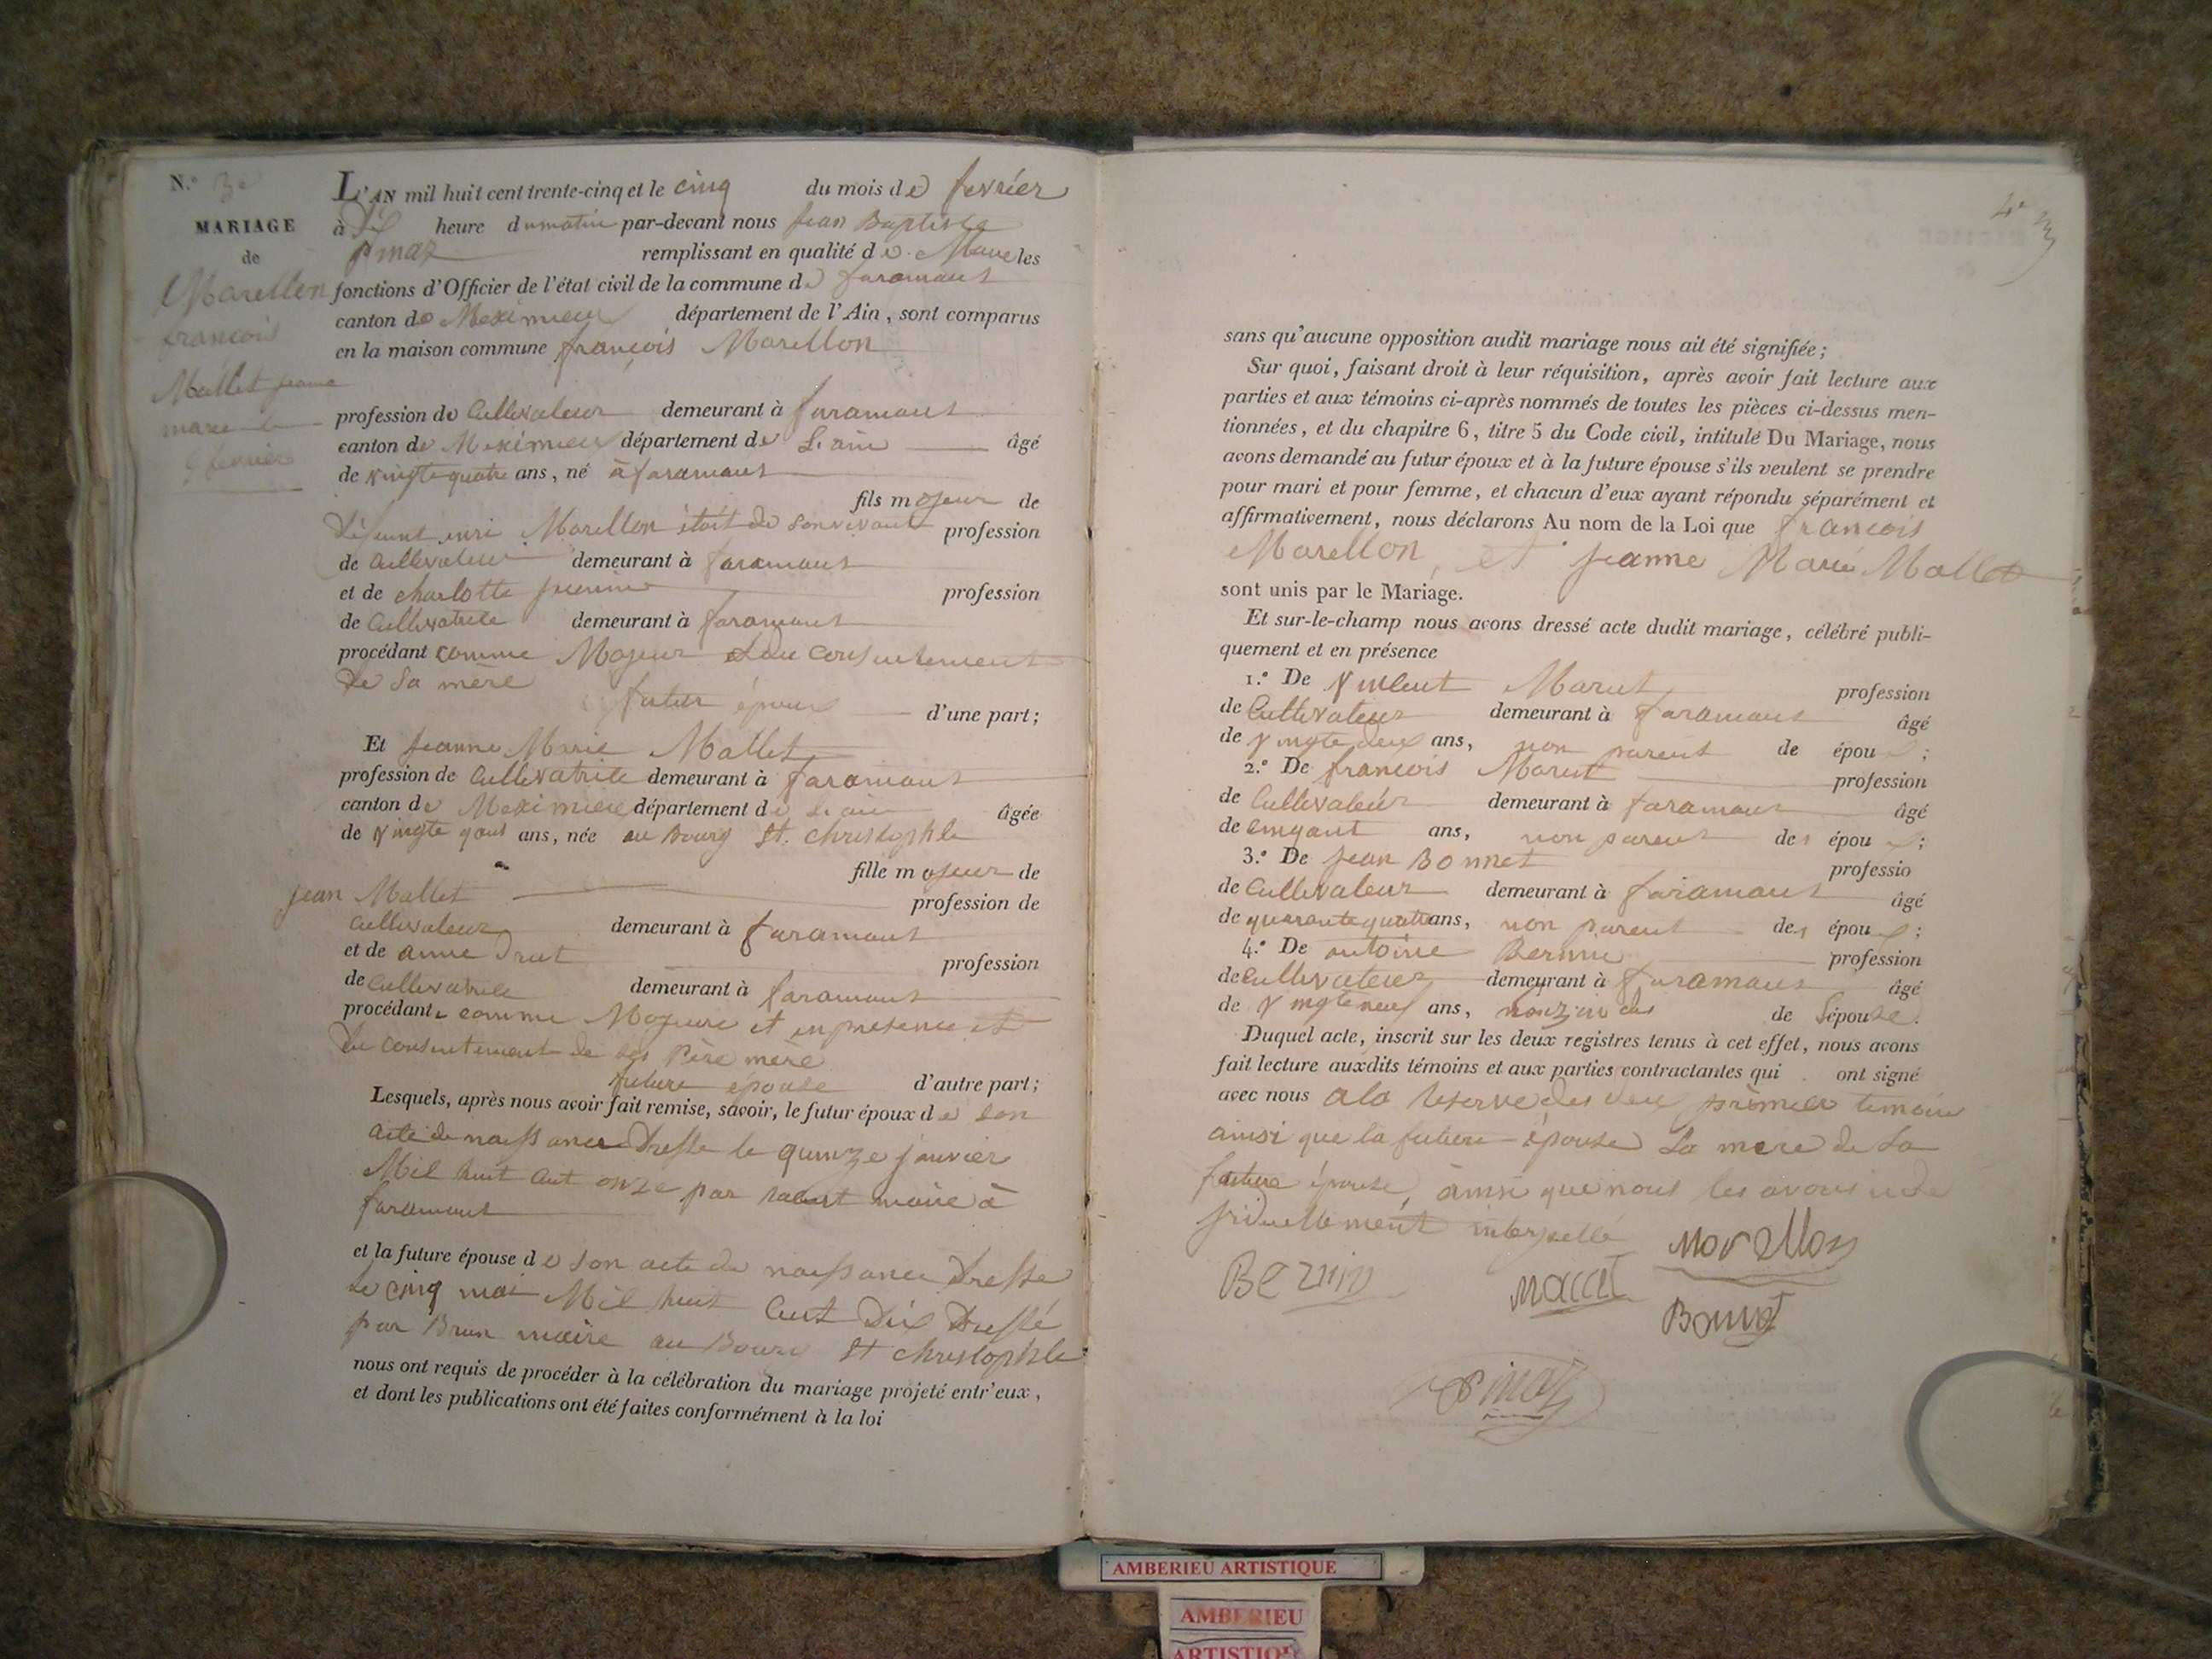 N.º 3e
MARIAGE
de
Marellon
françois
Mallet jeanne
marie le
5 fevrier
L'AN mil huit cent trente-cinq et le cinq du mois de fevrier
à heure du matin par-devant nous Jean Baptiste
pinaz remplissant en qualité de Maire les
fonctions d'Officier de l'état civil de la commune de faramans
canton de Meximieux département de l'Ain, sont comparus
en la maison commune françois Marellon
profession de Cultivateur demeurant à faramans
canton de Meximieu département de L'ain âgé
de vingte quatre ans, né à faramans
fils majeur de
Défeunt enri Marellon étoit de son vivant profession
de Cultivateur demeurant à faramans
et de charlotte profession
de Cultivatrice demeurant à faramans
procédant comme Majeur et du consentement
de Sa mère
futur époux d'une part;
Et jeanne Marie Mallet
profession de Cultivatrice demeurant à faramans
canton de Meximieu département de L'ain âgée
de vingte ans, née au Bourg St. christophle
fille majeur de
jean Mallet profession de
Cultivateur demeurant à faramans
et de anne Drut profession
de Cultivatrice demeurant à faramans
procédant comme Majeure et en presence et
du consentement de ses Père mère
future épouse d'autre part;
Lesquels, après nous avoir fait remise, savoir, le futur époux de son
acte de naissance Dresse le quinze janvier
Mil huit Cent onze par maire à
faramans
et la future épouse de son acte de naissance Dresse
Le cinq mai Mil huit Cent Dix Dressé
par Brun maire au Bourg St christophle
nous ont requis de procéder à la célébration du mariage projeté entr'eux,
et dont les publications ont été faites conformément à la loi
4e
sans qu'aucune opposition audit mariage nous ait été signifiée;
Sur quoi, faisant droit à leur réquisition, après avoir fait lecture aux
parties et aux témoins ci-après nommés de toutes les pièces ci-dessus men-
tionnées, et du chapitre 6, titre 5 du Code civil, intitulé Du Mariage, nous
avons demandé au futur époux et à la future épouse s'ils veulent se prendre
pour mari et pour femme, et chacun d'eux ayant répondu séparément et
affirmativement, nous déclarons Au nom de la Loi que francois
Marellon, et jeanne Marie Mallet
sont unis par le Mariage.
Et sur-le-champ nous avons dressé acte dudit mariage, célébré publi-
quement et en présence
1.º De Vincent profession
de Cultivateur demeurant à faramans âgé
de vingte deux ans, non parent de époux;
2.º De francois profession
de Cultivateur demeurant à faramans âgé
de ans, non parent des époux;
3.º De jean Bonnet professio
de Cultivateur demeurant à faramans âgé
de quarante quatre ans, non parent des époux;
4.º De antoine Bernin profession
de Cultivateur demeurant à faramans âgé
de vingte neuf ans, de Lépouse.
Duquel acte, inscrit sur les deux registres tenus à cet effet, nous avons
fait lecture auxdits témoins et aux parties contractantes qui ont signé
avec nous a la reserve des deux prèmier temoin
ainsi que la future épouse La mere de La
future épouse, ainsi que nous les avons inde
viduellement interpellé
Bernin
Marellon
Mallet
Bonnet
Pinaz
AMBERIEU ARTISTIQUE
AMBERIEU
ARTISTIQUE